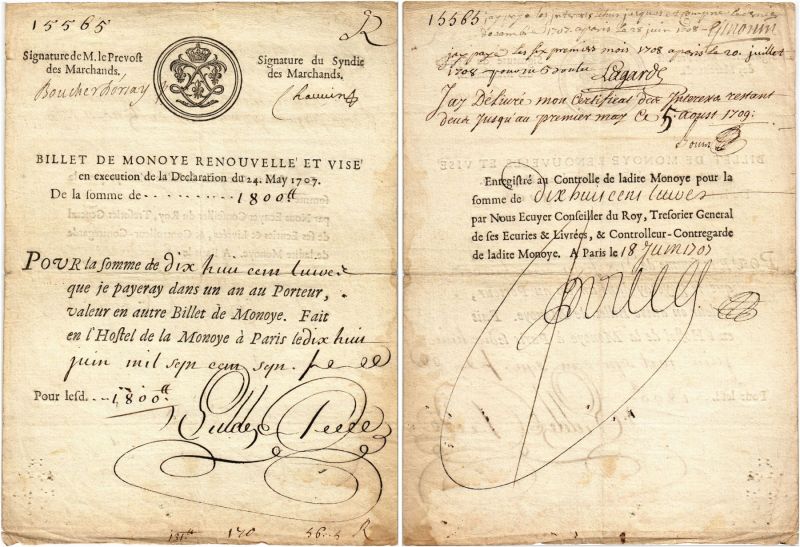 15565
R
Signature de M. le Prevost
des Marchands,
Boucher Dorsay
Signature du Syndic
des Marchands.
Chauvin
BILLET DE MONOYE RENOUVELLE' ET VISE'
en execution de la Declaration du 24. May 1707.
De la somme de 1800tt
POUR la somme de dix huit cent livres
que je payeray dans un an au Porteur,
valeur en autre Billet de Monoye. Fait
en l'Hostel de la Monoye à Paris le dix huit
juin mil sept cent sept.
Pour lesd. 1800tt
170
R
15565
jay payé les interets
1707. a paris le 28 juin 1708
jay payé les six premiers mois 1708 a paris le 20. juillet
1708
Lagarde
Jay Délivré mon Certificat des Interets restant
deus jusqu'au premier may ce 5. aoust 1709.
Enregistré au Controlle de ladite Monoye pour la
somme de dix huit cent livres
par Nous Ecuyer Conseiller du Roy, Tresorier General
de ses Ecuries & Livrées, & Controlleur-Contregarde
de ladite Monoye. A Paris le 18 Juin 1707